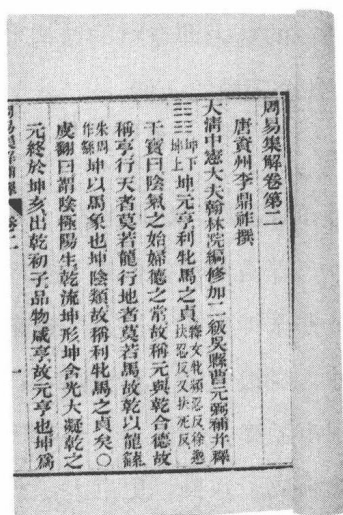 周易集解卷第二
唐資州李鼎祚撰
大清中憲大夫翰林院編修加二級吳縣曹元弼補并釋
☷☷坤下坤上坤元亨利牝馬之貞釋文牝頻忍反徐邈扶忍反又扶死反
干寶曰陰氣之始婦德之常故稱元與乾合德故
稱亨行天者莫若龍行地者莫若馬故乾以龍繇
坤以馬象也坤陰類故稱利牝馬之貞矣〇
虞翻曰謂陰極陽生乾流坤形坤含光大凝乾之
元終於坤亥出乾初子品物咸亨故元亨也坤爲
卷二
一